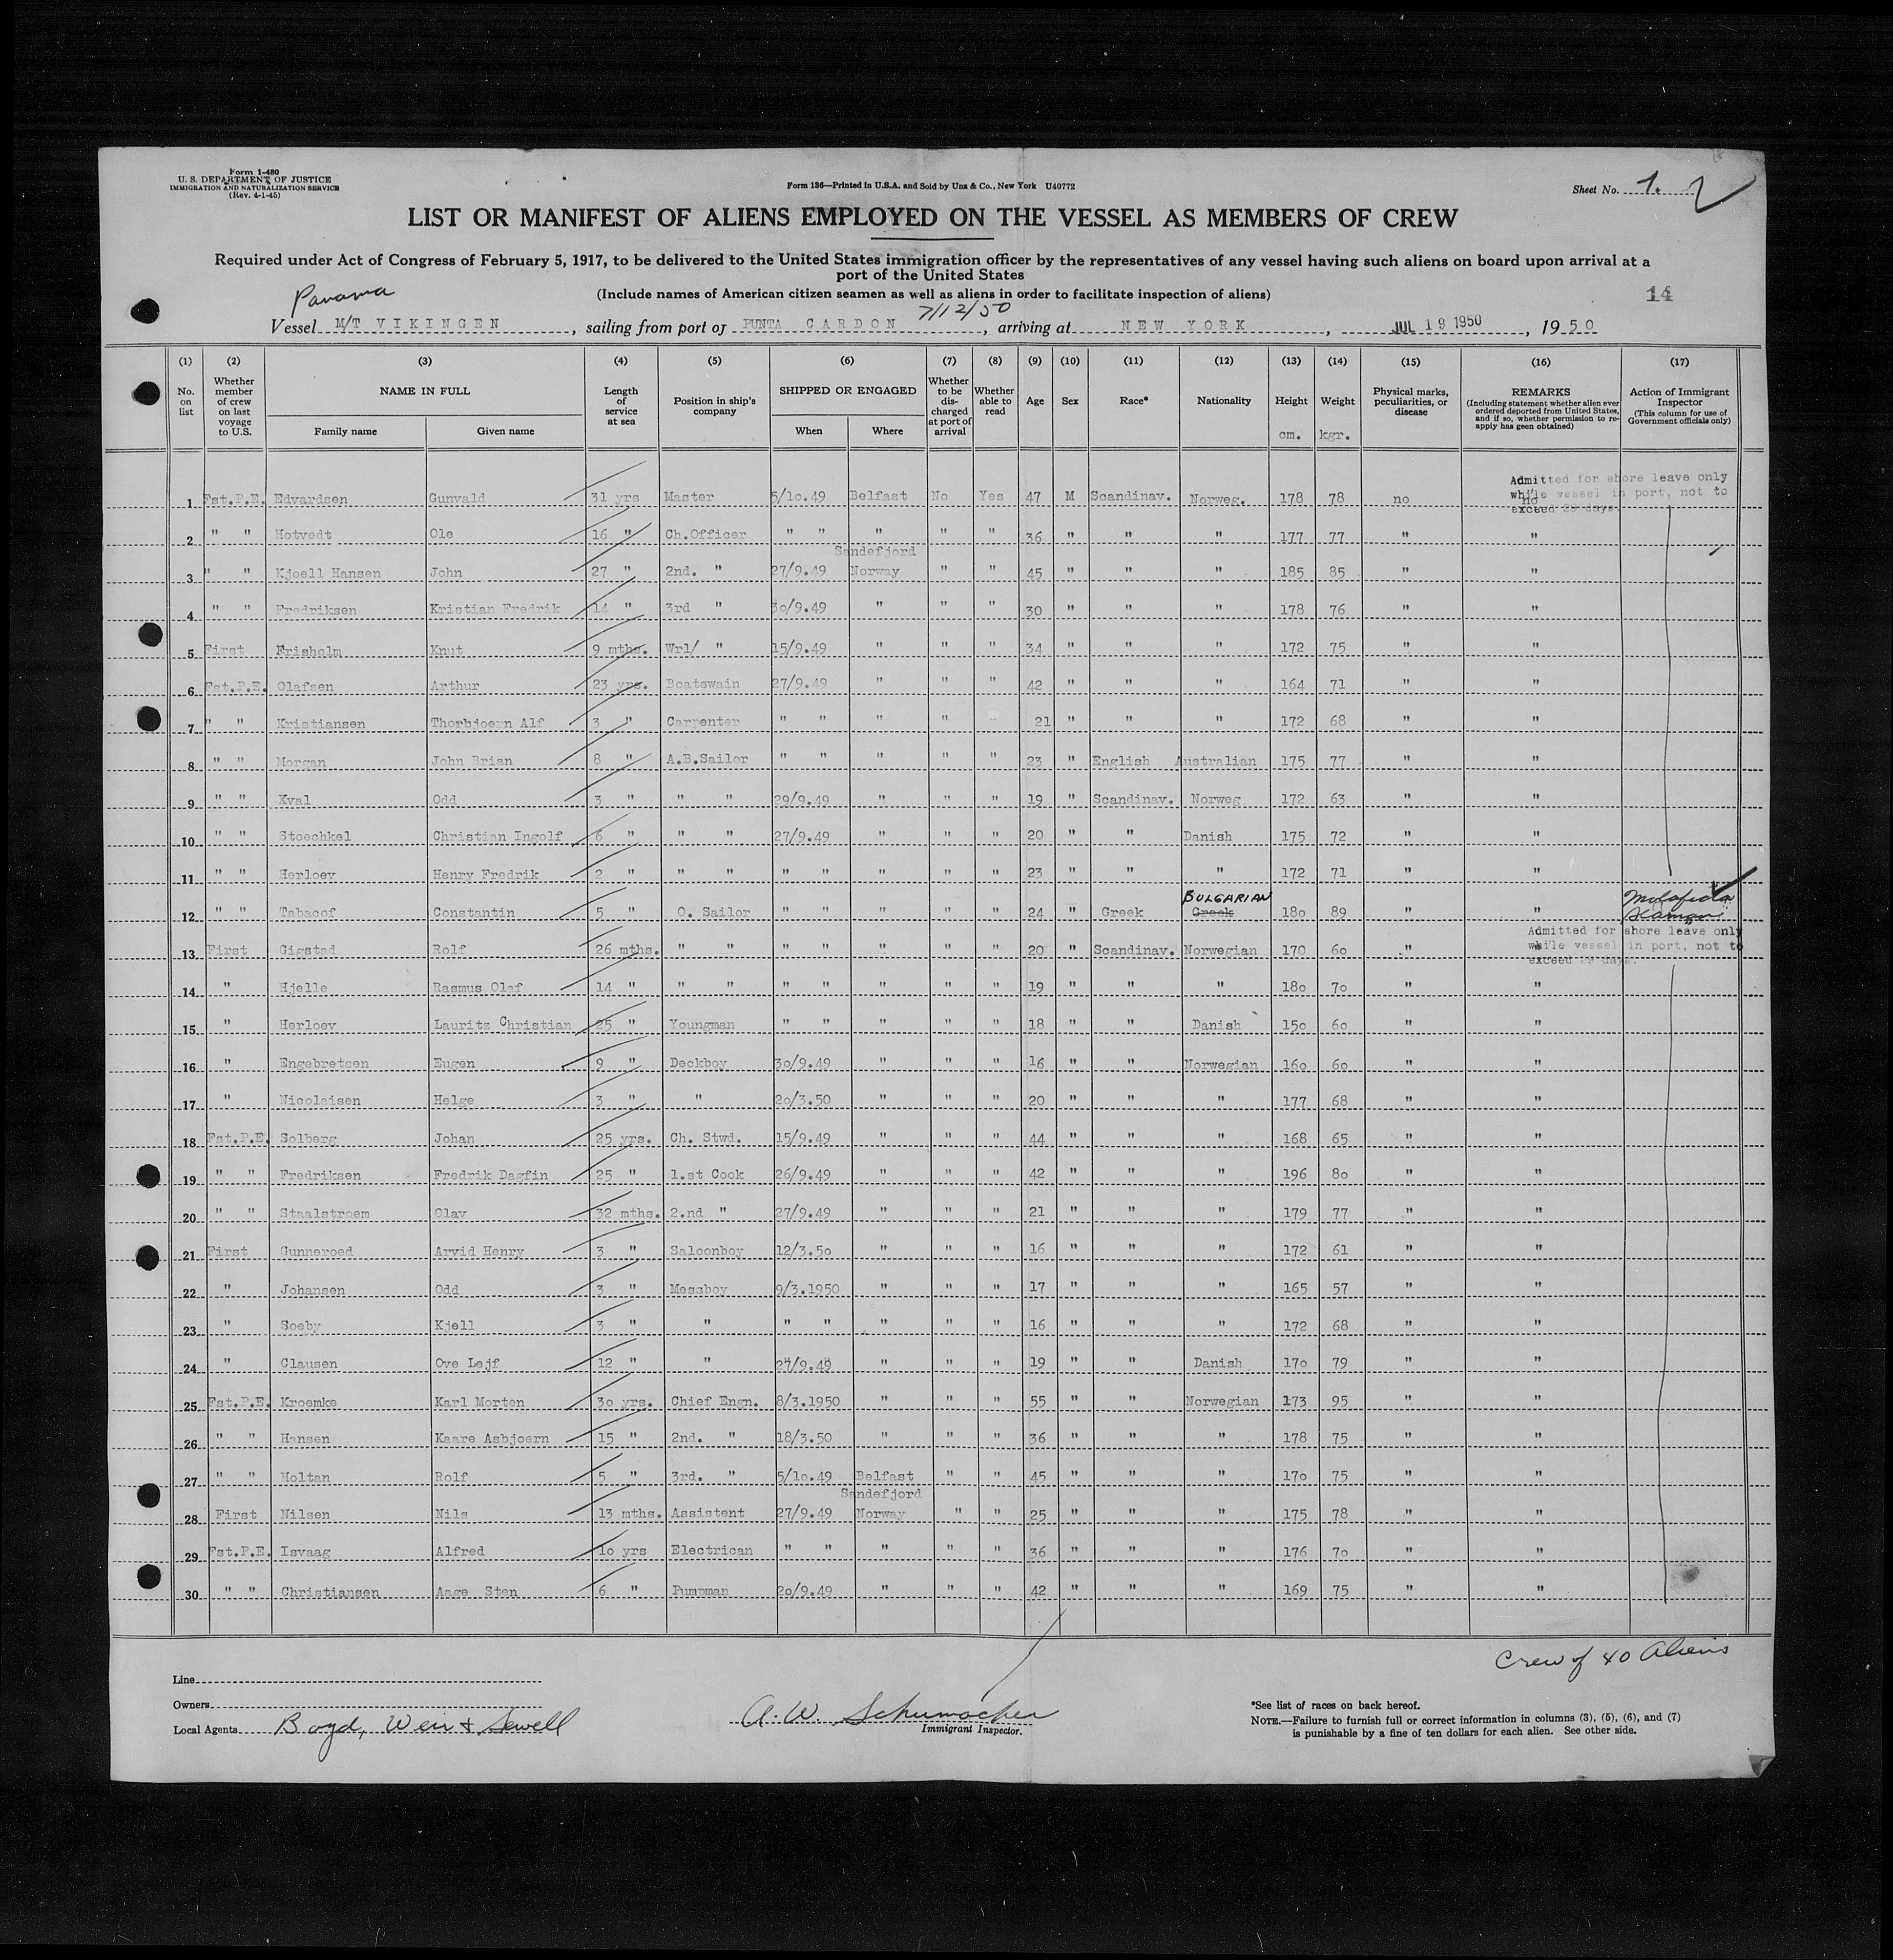 Form I-480
U. S. DEPARTMENT OF JUSTICE
IMMIGRATION AND NATURALIZATION SERVICE
(Rev. 4-1-45)
Form 136—Printed in U.S.A. and Sold by Unz & Co., New York U40772
Sheet No. 1. 2
LIST OR MANIFEST OF ALIENS EMPLOYED ON THE VESSEL AS MEMBERS OF CREW
Required under Act of Congress of February 5, 1917, to be delivered to the United States immigration officer by the representatives of any vessel having such aliens on board upon arrival at a
port of the United States
(Include names of American citizen seamen as well as aliens in order to facilitate inspection of aliens)
14
Panama
7/12/50
Vessel M/T VIKINGEN, sailing from port of PUNTA CARDON, arriving at NEW YORK, JUL 19 1950, 1950
(1) (2) (3) (4) (5) (6) (7) (8) (9) (10) (11) (12) (13) (14) (15) (16) (17)
No. on list
Whether member of crew on last voyage to U.S.
NAME IN FULL
Family name
Given name
Length of service at sea
Position in ship's company
SHIPPED OR ENGAGED
When
Where
Whether to be discharged at port of arrival
Whether able to read
Age
Sex
Race*
Nationality
Height
cm.
Weight
kgr.
Physical marks, peculiarities, or disease
REMARKS
(Including statement whether alien ever ordered deported from United States, and if so, whether permission to re-apply has geen obtained)
Action of Immigrant Inspector
(This column for use of Government officials only)
Admitted for shore leave only
while vessel in port, not to
exceed 29 days.
1 Fst.P.E. Edvardsen Gunvald 31 yrs Master 5/10.49 Belfast No Yes 47 M Scandinav. Norweg. 178 78 no no
2 " " Hotvedt Ole 16 " Ch.Officer " " " " " 36 " " " 177 77 " "
Sandefjord
3 " " Kjoell Hansen John 27 " 2nd. " 27/9.49 Norway " " 45 " " " 185 85 " "
4 " " Fredriksen Kristian Fredrik 14 " 3rd " 30/9.49 " " " 30 " " " 178 76 " "
5 First Frisholm Knut 9 mths. Wrl/ " 15/9.49 " " " 34 " " " 172 75 " "
6 Fst.P.E. Olafsen Arthur 23 yrs. Boatswain 27/9.49 " " " 42 " " " 164 71 " "
7 " " Kristiansen Thorbjoern Alf 3 " Carpenter " " " " " 21 " " " 172 68 " "
8 " " Morgan John Brian 8 " A.B.Sailor " " " " " 23 " English Australian 175 77 " "
9 " " Kval Odd 3 " " " 29/9.49 " " " 19 " Scandinav. Norweg 172 63 " "
10 " " Stoechkel Christian Ingolf 6 " " " 27/9.49 " " " 20 " " Danish 175 72 " "
11 " " Herloev Henry Fredrik 2 " " " " " " " " 23 " " " 172 71 " "
BULGARIAN
12 " " Tabacof Constantin 5 " O. Sailor " " " " " 24 " Greek Greek 180 89 " " Malafida Seaman
Admitted for shore leave only
while vessel in port, not to
exceed 29 days.
13 First Gigstad Rolf 26 mths. " " " " " " " 20 " Scandinav. Norwegian 170 60 "
14 " Hjelle Rasmus Olaf 14 " " " " " " " " 19 " " " 180 70 " "
15 " Herloev Lauritz Christian 25 " Youngman " " " " " 18 " " Danish 150 60 " "
16 " Engebretsen Eugen 9 " Deckboy 30/9.49 " " " 16 " " Norwegian 160 60 " "
17 " Nicolaisen Helge 3 " " 20/3.50 " " " 20 " " " 177 68 " "
18 Fst.P.E. Solberg Johan 25 yrs. Ch. Stwd. 15/9.49 " " " 44 " " " 168 65 " "
19 " " Fredriksen Fredrik Dagfin 25 " 1.st Cook 26/9.49 " " " 42 " " " 196 80 " "
20 " " Staalstroem Olav 32 mths. 2.nd " 27/9.49 " " " 21 " " " 179 77 " "
21 First Gunneroed Arvid Henry 3 " Saloonboy 12/3.50 " " " 16 " " " 172 61 " "
22 " Johansen Odd 3 " Messboy 9/3.1950 " " " 17 " " " 165 57 " "
23 " Soeby Kjell 3 " " " " " " " 16 " " " 172 68 " "
24 " Clausen Ove Lejf 12 " " 27/9.49 " " " 19 " " Danish 170 79 " "
25 Fst.P.E. Kroemke Karl Morten 30 yrs. Chief Engn. 8/3.1950 " " " 55 " " Norwegian 173 95 " "
26 " " Hansen Kaare Asbjoern 15 " 2nd. " 18/3.50 " " " 36 " " " 178 75 " "
27 " " Holtan Rolf 5 " 3rd. " 5/10.49 Belfast " " 45 " " " 170 75 " "
Sandefjord
28 First Nilsen Nils 13 mths. Assistent 27/9.49 Norway " " 25 " " " 175 78 " "
29 Fst.P.E. Isvaag Alfred 10 yrs Electrican " " " " " 36 " " " 176 70 " "
30 " " Christiansen Aage Sten 6 " Pumpman 20/9.49 " " " 42 " " " 169 75 " "
Crew of 40 Aliens
Line
Owners
Local Agents Boyd, Weir & Sewell
A. W. Schumacher
Immigrant Inspector.
*See list of races on back hereof.
NOTE.—Failure to furnish full or correct information in columns (3), (5), (6), and (7)
is punishable by a fine of ten dollars for each alien. See other side.